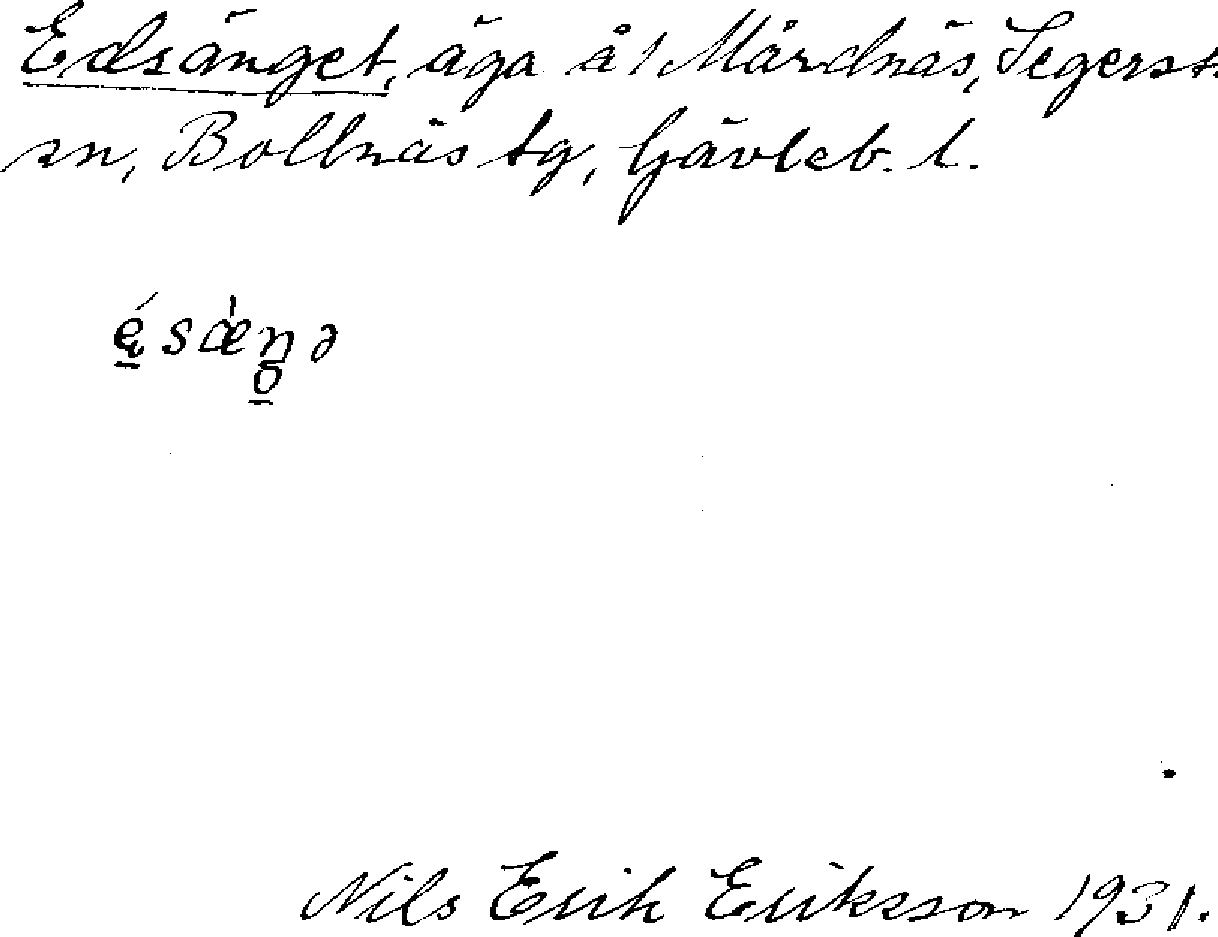 Edsänget, äga å 1 Mårdnäs, Segerst.
sn, Bollnäs tg, Gävleb. l.
Nils Erik Eriksson 1931.